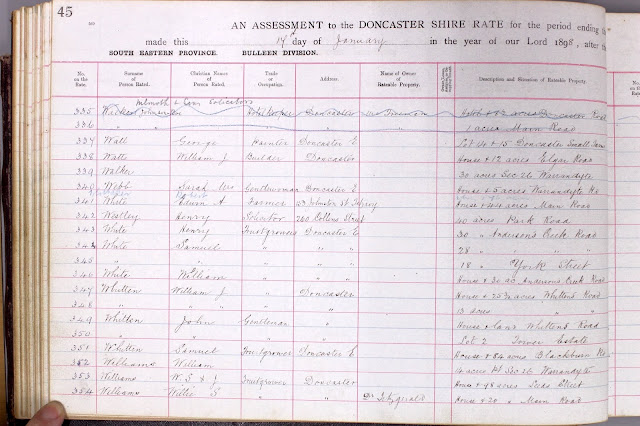 45
AN ASSESSMENT to the DONCASTER SHIRE RATE for the period ending
made this 14th day of January in the year of our Lord 1898, after the
SOUTH EASTERN PROVINCE. BULLEEN DIVISION.
No. on the Rate. Surname of Person Rated. Christian Names of Person Rated. Trade or Occupation. Address. Name of Owner of Rateable Property. Description and Situation of Rateable Property No. on the Rate.
Solicitors
335 Doncaster Road
336 " " 1 acres Main Road
337 Watt George Painter Doncaster E Lot 4 & 15 Doncaster Small
338 Watts William J Builder Doncaster House & 12 acres Elgar Road
339 Walker 30 acres Sec 26 Warrandyte
340 Webb Sarah Mrs Gentlewoman Doncaster E House & 5 acres Warrandyte Rd
341 White Edwin A Farmer 43 Johnston St Fitzroy House & 44 acres Main Road
342 Westley Henry Solicitor 260 Collins Street 40 acres Park Road
343 White Henry Fruitgrower Doncaster E 30 " Andersons Creek Road
344 White Samuel " " 28 " " "
345 " " " " 18 " York Street
346 White William " " House & 30 ac Andersons Creek Road
347 Whitten William J. " Doncaster House & 20 3/4 acres Whittens Road
348 " " " " 13 acres " "
349 Whitton John Gentleman " House & Land Whittens Road
350 " " " " Lot 2 Tower Estate
351 Whitten Samuel Fruitgrower Doncaster E House & 84 acres Blackburn Rd
352 Williams William 14 acres Pt Sec 26 Warrandyte
353 Williams W. S & J Fruitgrower Doncaster House & 98 acres Street
354 Williams Willie S " " Dr Fitzgerald House & 20 " Main Road